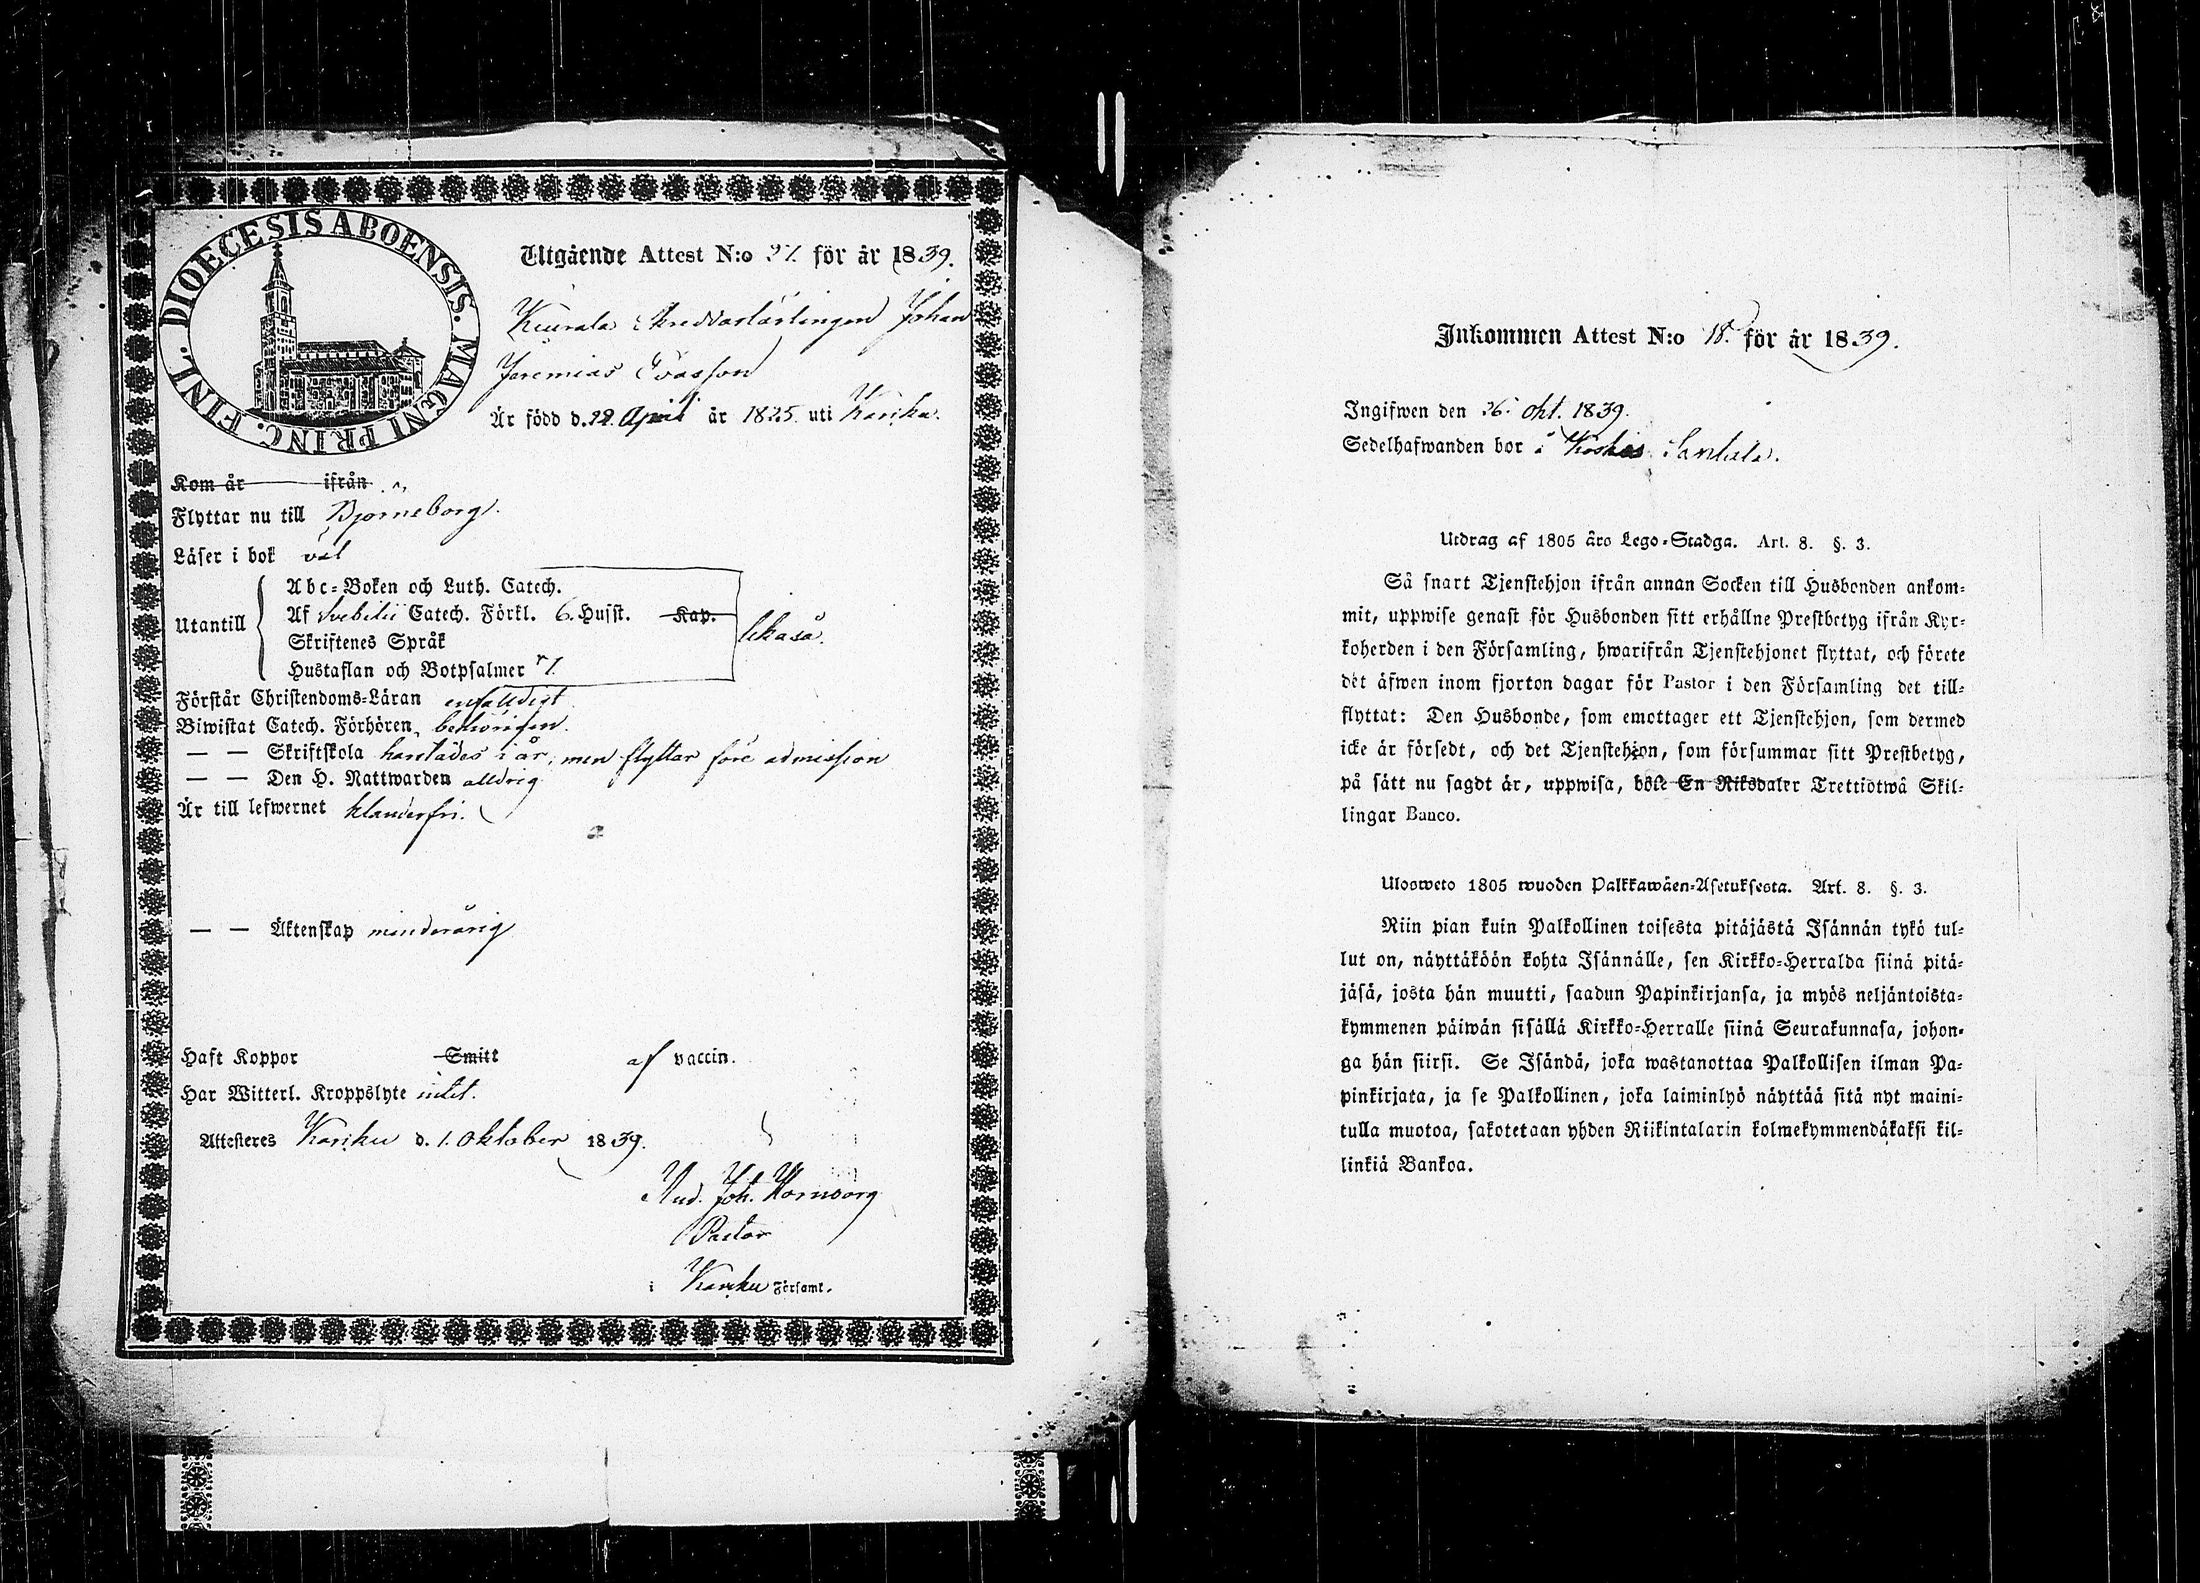 DIOECESIS ABOENSIS. MAGNI PRINC. FINL.
Utgående Attest N:o för år 1839.
Johan
Jeremias Evasson
Är född d. 22. April år 1825 uti Karku.
Kom år ifrån
Flyttar nu till Björneborg.
Läser i bok väl
Utantill
Abc-Boken och Luth. Catech.
Af Svebilii Catech. Förkl. 6. Husst. Kap.
Skriftenes Språk
Hustaflan och Botpsalmer
likaså.
Förstår Christendoms-Läran enfaldigt
Biwistat Catech. Förhören behörigen.
— — Skriftskola i år, men flyttar före admission
— — Den H. Nattwarden aldrig
Är till lefwernet klanderfri.
— — Äktenskap minderårig
Haft Koppor Smitt af vaccin.
Har Witterl. Kroppslyte intet.
Attesteres Karku d. 1. Oktober 1839.
Joh.
Pastor
i Karku Församl.
Inkommen Attest N:o 18. för år 1839.
Ingifwen den 26. Okt. 1839.
Sedelhafwanden bor å
Utdrag af 1805 års Lego-Stadga. Art. 8. §. 3.
Så snart Tjenstehjon ifrån annan Socken till Husbonden ankom-
mit, uppwise genast för Husbonden sitt erhållne Prestbetyg ifrån Kyr-
koherden i den Församling, hwarifrån Tjenstehjonet flyttat, och förete
det äfwen inom fjorton dagar för Pastor i den Församling det till-
flyttat: Den Husbonde, som emottager ett Tjenstehjon, som dermed
icke är försedt, och det Tjenstehjon, som försummar sitt Prestbetyg,
på sätt nu sagdt är, uppwisa, böte En Riksdaler Trettiotwå Skil-
lingar Banco.
Ulosweto 1805 wuoden Palkkawäen-Asetuksesta. Art. 8. §. 3.
Niin pian kuin Palkollinen toisesta pitäjästä Isännän tykö tul-
lut on, näyttäköön kohta Isännälle, sen Kirkko-Herralda siinä pitä-
jäsä, josta hän muutti, saadun Papinkirjansa, ja myös neljäntoista-
kymmenen päiwän sisällä Kirkko-Herralle siinä Seurakunnasa, johon-
ga hän siirsi. Se Isändä, joka wastanottaa Palkollisen ilman Pa-
pinkirjata, ja se Palkollinen, joka laiminlyö näyttää sitä nyt maini-
tulla muotoa, sakotetaan yhden Riikintalarin kolmekymmendäkaksi kil-
linkiä Bankoa.